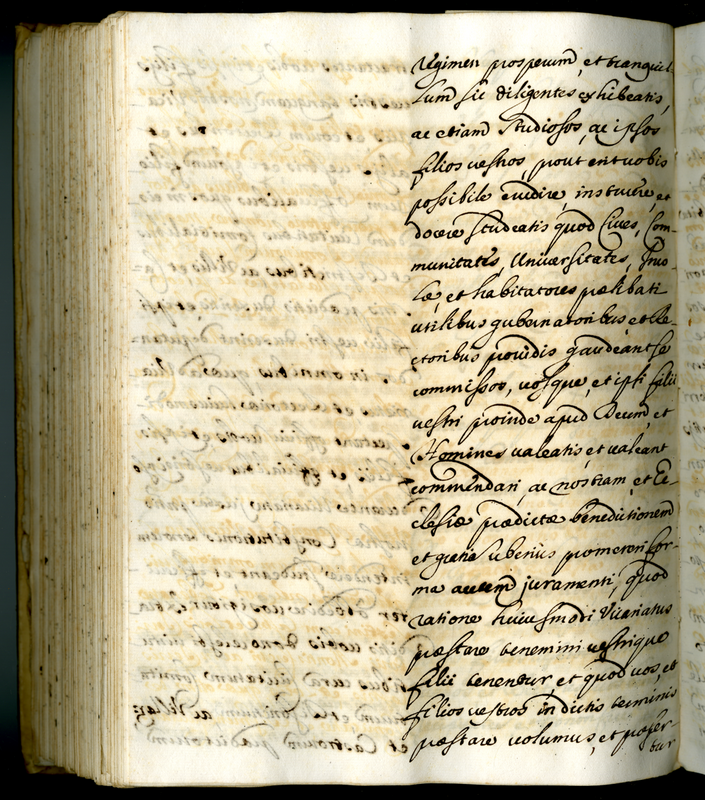 regimen prosperum, et tranquil-
lum sic diligentes exhibeatis,
ac etiam studiosos, ac ipsos
filios vestros, prout erit vobis
possibile erudire, instruere, et
docere studeatis quod Cives, Com-
munitates, Universitates, Inco-
læ, et habitatores prælibati
utilibus gubernatoribus, et Re-
ctoribus providis gaudeant se
commissos, vosque, et ipsi filii
vestri proinde apud Deum, et
Homines valeatis, et valeant
commendari, ac nostram, et Ec-
clesiæ prædictæ benedictionem
et gratia uberius promereri for-
ma autem juramenti, quod
ratione huiusmodi Vicariatus
præstare tenemini vestrique
filii tenentur, et quod vos, et
filios vestros in dictis terminis
præstare volumus, et profer-
tur